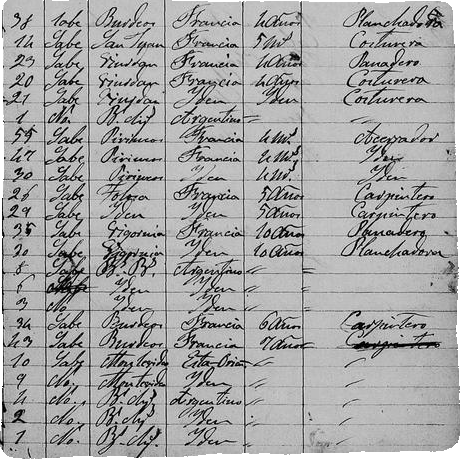 38 Sabe Burdeos Francia 4 Años Planchadora
14 Sabe San Juan Francia 5 Ms Costurera
23 Sabe Francia 4 Años Panadero
20 Sabe Francia 4 Años Costurera
21 Sabe Yden Yden Costurera
1 No. Bs. Ays. Argentino " "
55 Sabe Pirineos Francia 4 Ms Acerrador
47 Sabe Pirineos Francia 4 Ms Yden
30 Sabe Pirineos Yden 4 Ms Yden
26 Sabe Francia 5 Años Carpintero
29 Sabe Yden Yden 5 Años Carpintero
35 Sabe Francia 10 Años Planadero
30 Sabe Yden 10 Años Planchadora
8 Sabe Argentino " "
6 Yden Yden " "
3 No Yden Yden " "
34 Sabe Burdeos Francia 6 Años Carpintero
43 Sabe Burdeos Francia 7 Años
10 Sabe Montevideo "
9 No, Montevideo Yden " "
4 No, Bs. Ays. Argentino " "
2 No. Bs. Ays. Yden " "
1 No. Bs. Ays. Yden " "